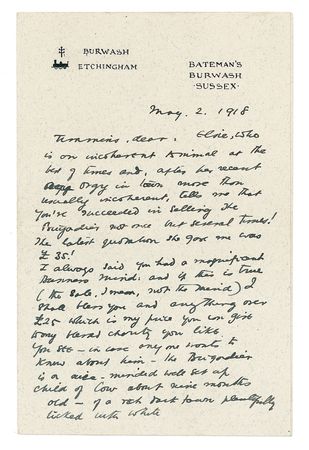 BURWASH
ETCHINGHAM
BATEMAN'S
BURWASH
SUSSEX
May. 2. 1918
Timmins, dear: Elsie, who
is an incoherent animal at the
best of times and, after her recent
orgy in town more than
usually incoherent, tells me that
you've succeeded in selling the
Brigadier not once but several times!
The latest quotation she gave me was
£ 35!
I always said you had a magnificent
business mind: and if this is true
(the sale, I mean, not the mind) I
shall bless you and anything over
£25 which is my price you can give
to any blessed charity you like
You see – in case any one wants to
know about him – the Brigadier
is a nice-minded well set up
child of Cow about nine months
old – of a rich dark brown plentifully
ticked with white